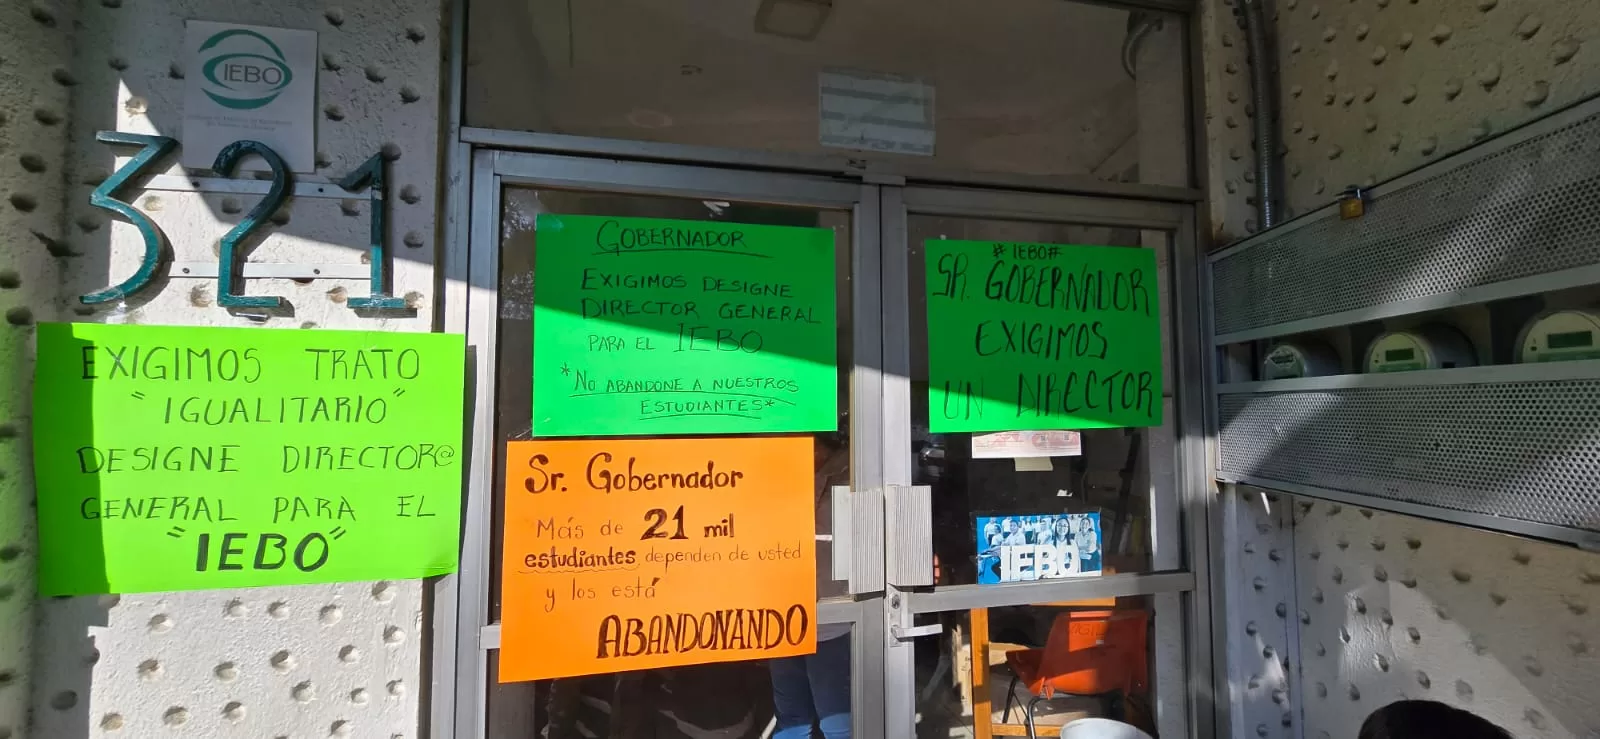 IEBO
321
EXIGIMOS TRATO
"IGUALITARIO"
DESIGNE DIRECTOR@
GENERAL PARA EL
"IEBO"
GOBERNADOR
EXIGIMOS DESIGNE
DIRECTOR GENERAL
PARA EL IEBO
*NO ABANDONE A NUESTROS
ESTUDIANTES*
Sr. Gobernador
Más de 21 mil
estudiantes dependen de usted
y los está
ABANDONANDO
# IEBO#
SR. GOBERNADOR
EXIGIMOS
UN DIRECTOR
IEBO